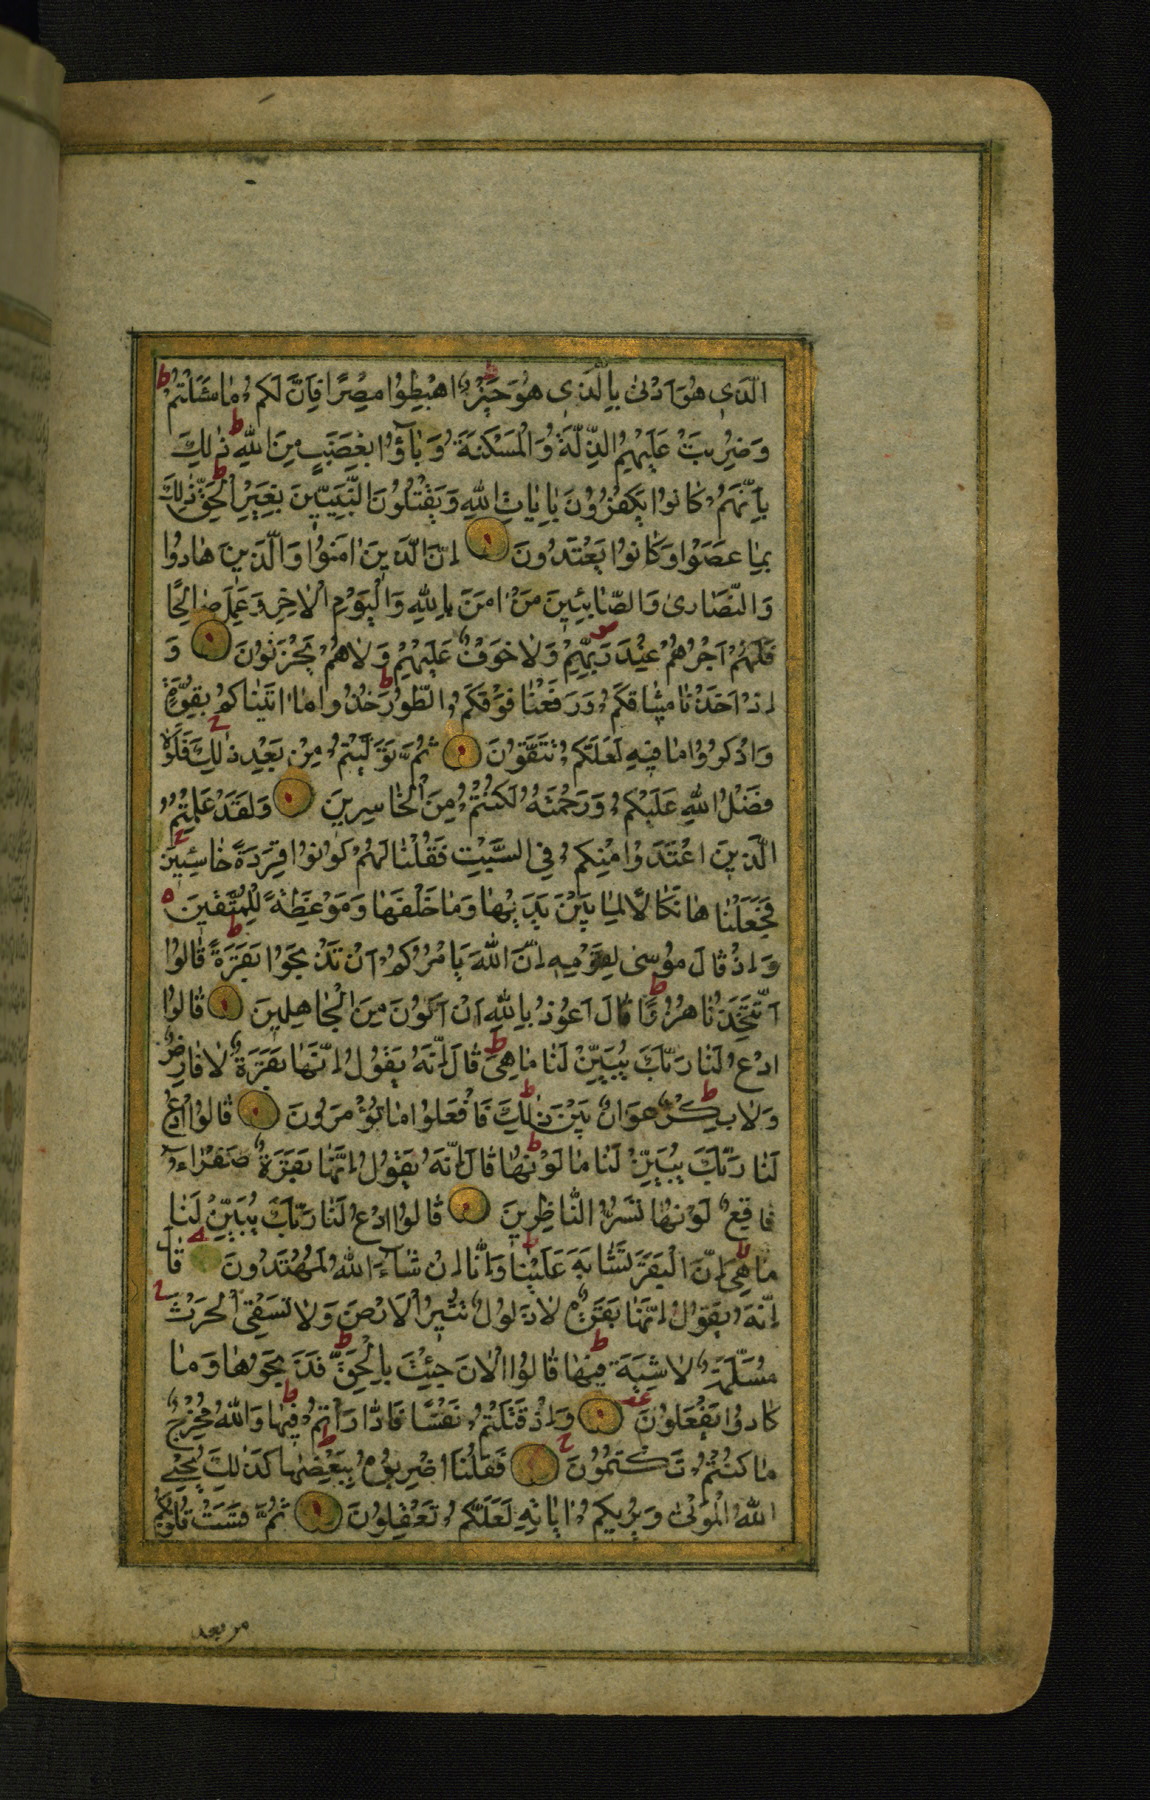 الَّذِي هُوَ اَدْنٰى بِالَّذِي هُوَ خَيْرٌ اِهْبِطُوا مِصْرًا فَاِنَّ لَكُمْ مَا سَئَلْتُمْ ط
وَضُرِبَتْ عَلَيْهِمُ الذِّلَّةُ وَالْمَسْكَنَةُ وَبَآؤُا بِغَضَبٍ مِنَ اللّٰهِ ط ذٰلِكَ
بِاَنَّهُمْ كَانُوا يَكْفُرُونَ بِاٰيَاتِ اللّٰهِ وَيَقْتُلُونَ النَّبِيّٖنَ بِغَيْرِ الْحَقِّ ط ذٰلِكَ
بِمَا عَصَوْا وَكَانُوا يَعْتَدُونَ اِنَّ الَّذِينَ اٰمَنُوا وَالَّذِينَ هَادُوا
وَالنَّصَارٰى وَالصَّابِئِينَ مَنْ اٰمَنَ بِاللّٰهِ وَالْيَوْمِ الْاٰخِرِ وَعَمِلَ صَالِحًا
فَلَهُمْ اَجْرُهُمْ عِنْدَ رَبِّهِمْ وَلَا خَوْفٌ عَلَيْهِمْ وَلَاهُمْ يَحْزَنُونَ وَ
اِذْ اَخَذْنَا مِيثَاقَكُمْ وَرَفَعْنَا فَوْقَكُمُ الطُّورَ ط خُذُوا مَا اٰتَيْنَاكُمْ بِقُوَّةٍ
وَاذْكُرُوا مَا فِيهِ لَعَلَّكُمْ تَتَّقُونَ ثُمَّ تَوَلَّيْتُمْ مِنْ بَعْدِ ذٰلِكَ فَلَوْلَا
فَضْلُ اللّٰهِ عَلَيْكُمْ وَرَحْمَتُهُ لَكُنْتُمْ مِنَ الْخَاسِرِينَ وَلَقَدْ عَلِمْتُمُ
الَّذِينَ اعْتَدَوْا مِنْكُمْ فِي السَّبْتِ فَقُلْنَا لَهُمْ كُونُوا قِرَدَةً خَاسِئِينَ
فَجَعَلْنَاهَا نَكَالًا لِمَا بَيْنَ يَدَيْهَا وَمَا خَلْفَهَا وَمَوْعِظَةً لِلْمُتَّقِينَ
وَاِذْ قَالَ مُوسٰى لِقَوْمِهِ اِنَّ اللّٰهَ يَاْمُرُكُمْ اَنْ تَذْبَحُوا بَقَرَةً ط قَالُوا
اَتَتَّخِذُنَا هُزُئًا ط قَالَ اَعُوذُ بِاللّٰهِ اَنْ اَكُونَ مِنَ الْجَاهِلِينَ قَالُوا
ادْعُ لَنَا رَبَّكَ يُبَيِّنْ لَنَا مَا هِيَ ط قَالَ اِنَّهُ يَقُولُ اِنَّهَا بَقَرَةٌ لَا فَارِضٌ
وَلَا بِكْرٌ ط عَوَانٌ بَيْنَ ذٰلِكَ ط فَافْعَلُوا مَا تُؤْمَرُونَ قَالُوا ادْعُ
لَنَا رَبَّكَ يُبَيِّنْ لَنَا مَا لَوْنُهَا ط قَالَ اِنَّهُ يَقُولُ اِنَّهَا بَقَرَةٌ صَفْرَاءُ
فَاقِعٌ لَوْنُهَا تَسُرُّ النَّاظِرِينَ قَالُوا ادْعُ لَنَا رَبَّكَ يُبَيِّنْ لَنَا
مَا هِيَ اِنَّ الْبَقَرَ تَشَابَهَ عَلَيْنَا ط وَاِنَّا اِنْ شَآءَ اللّٰهُ لَمُهْتَدُونَ قَالَ
اِنَّهُ يَقُولُ اِنَّهَا بَقَرَةٌ لَا ذَلُولٌ تُثِيرُ الْاَرْضَ وَلَا تَسْقِي الْحَرْثَ
مُسَلَّمَةٌ لَا شِيَةَ فِيهَا ط قَالُوا الْاٰنَ جِئْتَ بِالْحَقِّ ط فَذَبَحُوهَا وَمَا
كَادُوا يَفْعَلُونَ وَاِذْ قَتَلْتُمْ نَفْسًا فَادّٰرَاْتُمْ فِيهَا ط وَاللّٰهُ مُخْرِجٌ
مَا كُنْتُمْ تَكْتُمُونَ فَقُلْنَا اضْرِبُوهُ بِبَعْضِهَا ط كَذٰلِكَ يُحْيِي
اللّٰهُ الْمَوْتٰى وَيُرِيكُمْ اٰيَاتِهِ لَعَلَّكُمْ تَعْقِلُونَ ثُمَّ قَسَتْ قُلُوبُكُمْ
من بعد